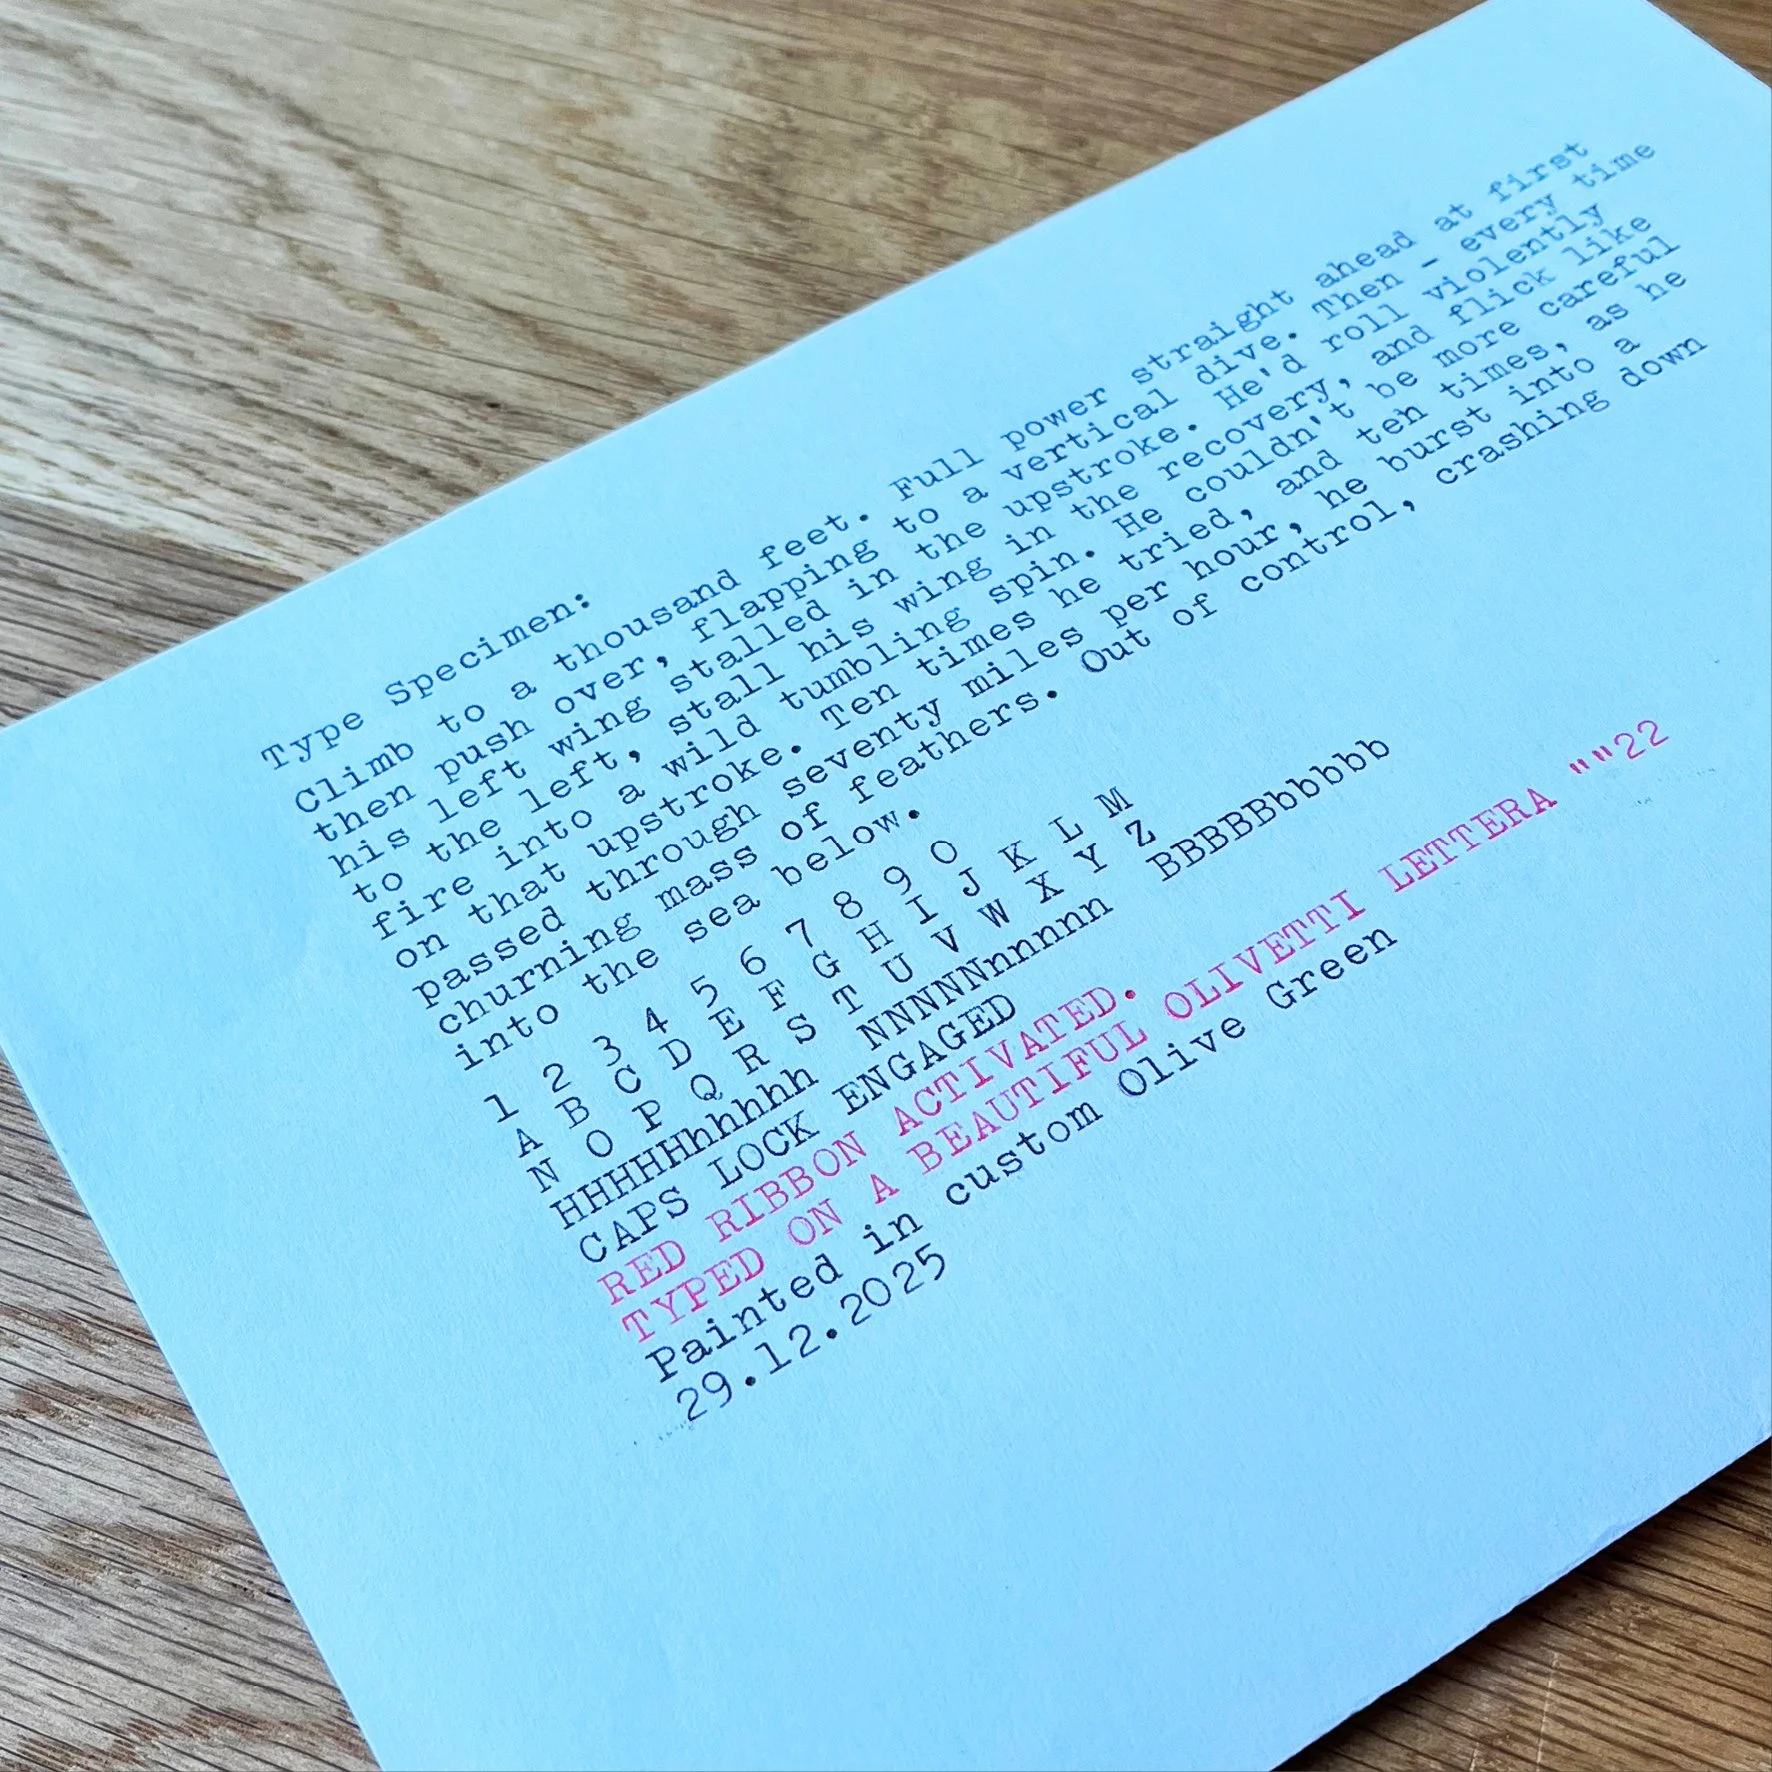 Type Specimen:
Climb to a thousand feet. Full power straight ahead at first
then push over, flapping to a vertical dive. Then - every time
his left wing stalled in the upstroke. He'd roll violently
to the left, stall his wing in the recovery, and flick like
fire into a wild tumbling spin. He couldn't be more careful
on that upstroke. Ten times he tried, and ten times, as he
passed through seventy miles per hour, he burst into a
churning mass of feathers. Out of control, crashing down
into the sea below.
1 2 3 4 5 6 7 8 9 0
A B C D E F G H I J K L M
N O P Q R S T U V W X Y Z
HHHHHhhhhh NNNNNnnnnnn BBBBBbbbbb
CAPS LOCK ENGAGED
RED RIBBON ACTIVATED.
TYPED ON A BEAUTIFUL OLIVETTI LETTERA ""22
Painted in custom Olive Green
29.12.2025